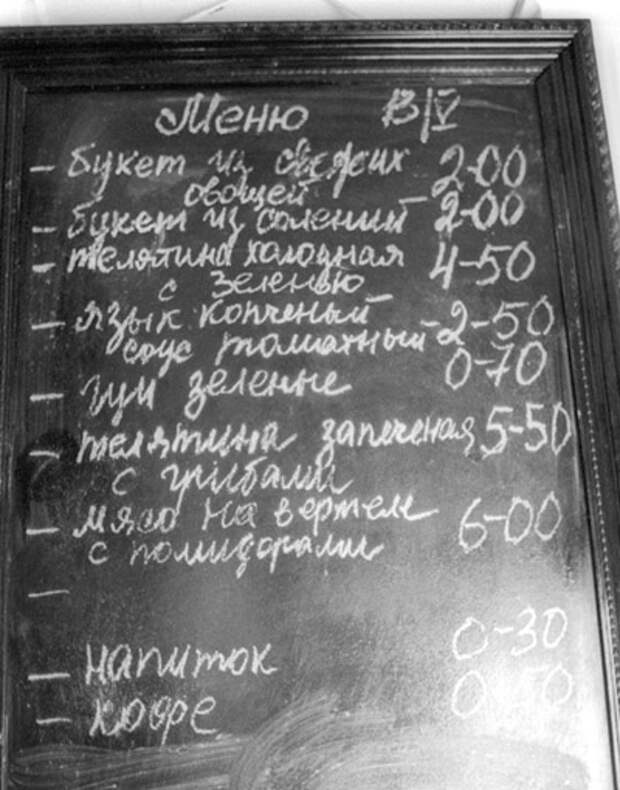 Меню 13/V
– букет из свежих 2-00
овощей
– букет из солений – 2-00
– телятина холодная 4-50
с зеленью
– язык копченый – 2-50
соус томатный – 0-70
– зеленые
– телятина запеченая 5-50
с грибами
– мясо на вертеле 6-00
с помидорами
–
– напиток 0-30
– кофе